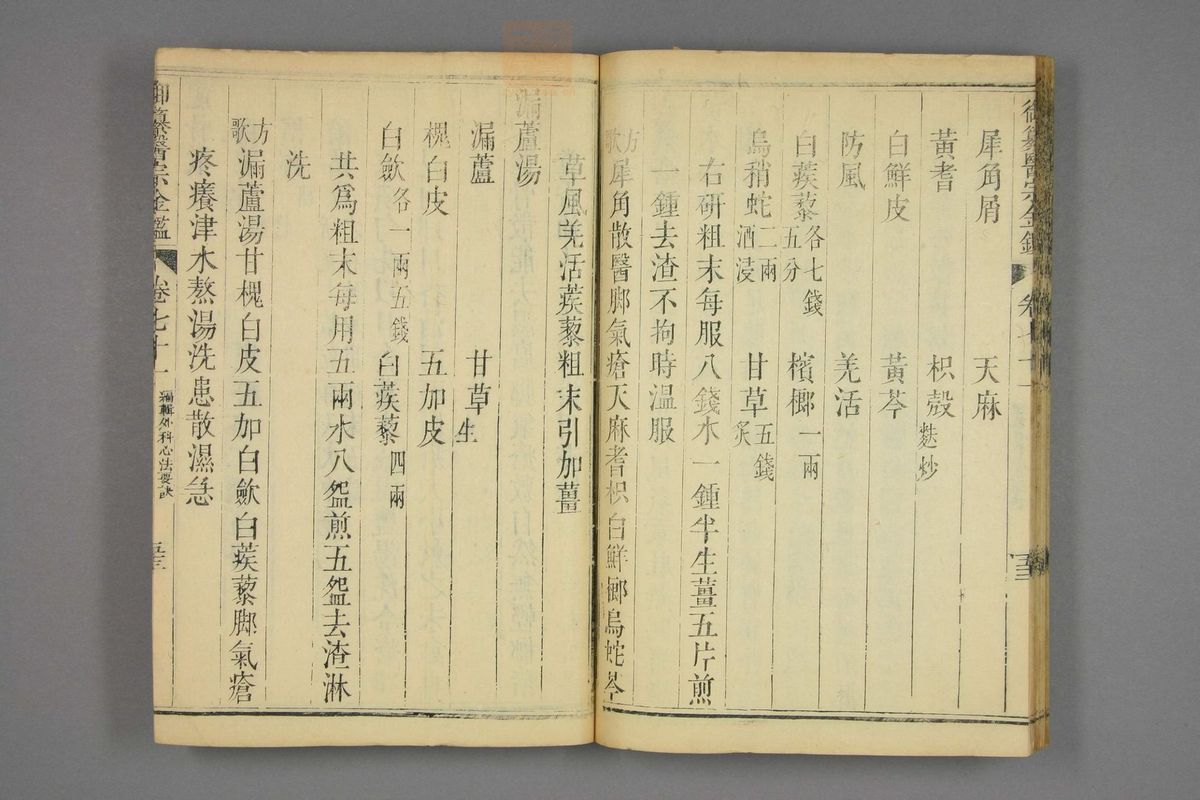 犀角屑 天麻
黃耆 枳殼麩炒
白鮮皮 黃芩
防風 羌活
白蒺藜各七錢五分 檳榔一兩
烏稍蛇二兩酒浸 甘草五錢炙
右研粗末每服八錢水一鍾半生薑五片煎
一鍾去渣不拘時溫服
方歌犀角散醫脚氣瘡天麻耆枳白鮮榔烏蛇芩
草風羌活蒺藜粗末引加薑
漏蘆湯
漏蘆 甘草生
槐白皮 五加皮
白歛各一兩五錢 白蒺藜四兩
共爲粗末每用五兩水八盌煎五盌去渣淋
洗
方歌漏蘆湯甘槐白皮五加白歛白蒺藜脚氣瘡
疼癢津水熬湯洗患散濕急
御纂醫宗金鑑 卷七十一 編輯外科心法要訣 五三